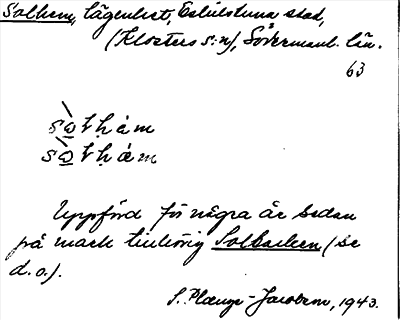 Solhem, lägenhet, Eskilstuna stad,
(Klosters s:n), Söderman. län.
63
Uppförd för några år sedan
på mark tillhörig Solbacken (se
d.o.).
S. Plænge-Jacobson, 1943.